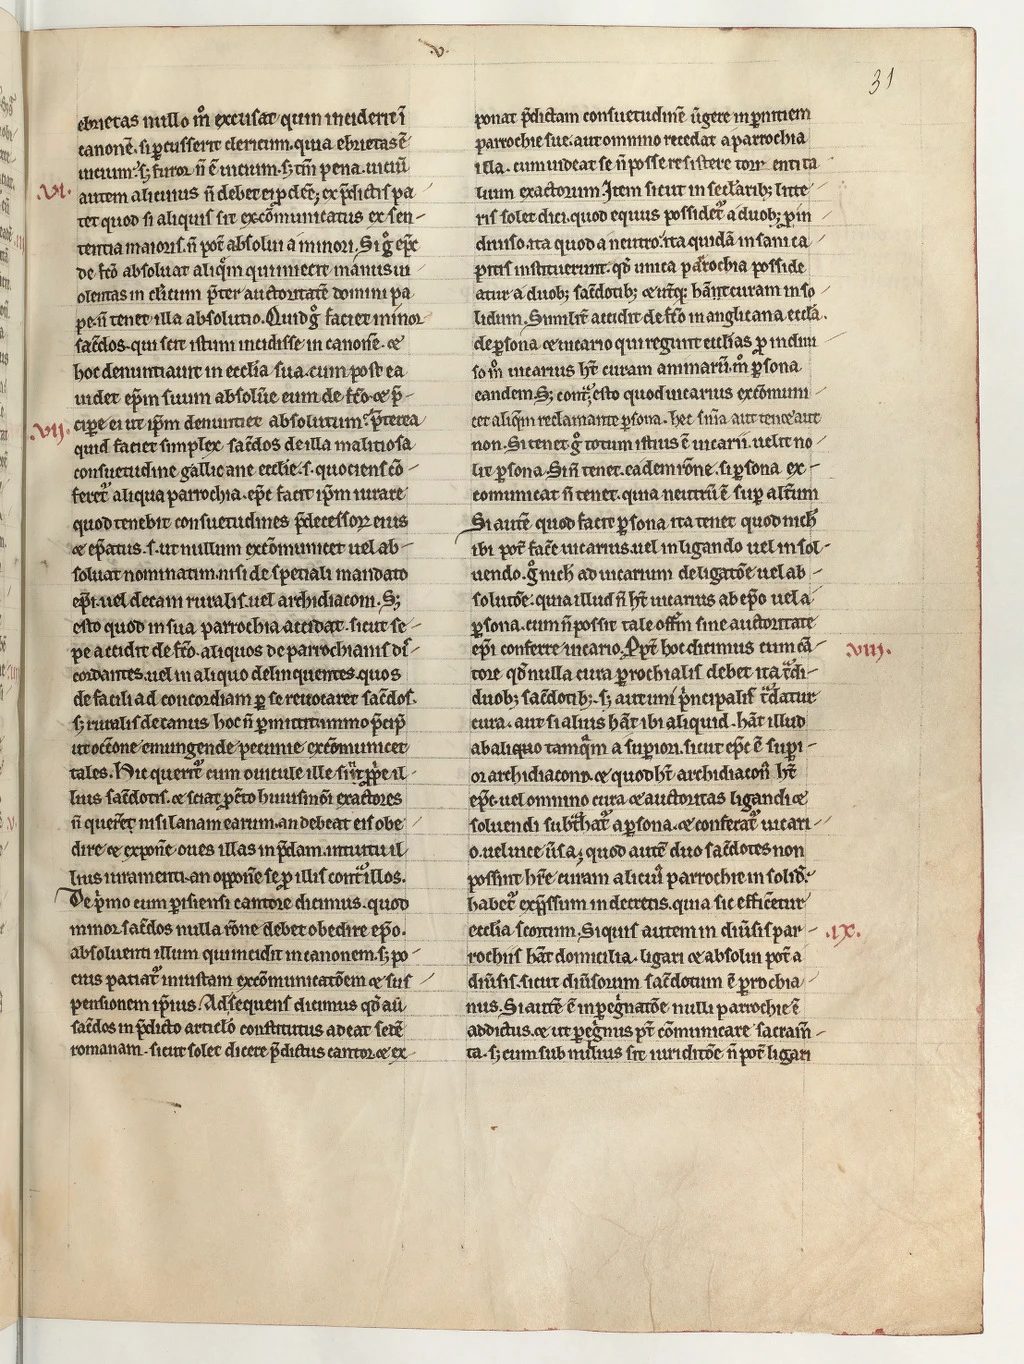 .v.
31
ebrietas nullo m̊ excusat quin inciderit ĩ
canonẽ. si ꝑcusserit clericum. quia ebrietas ẽ
uicium. sꝫ furor ñ ẽ uicium. sꝫ tm̃ pena. uiciũ
.VI. autem alienius ñ debet ei ꝓdeẽ; ex p̃dictis pa
tet quod si aliquis sit excõmunicatus ex sen-
tentia maioris. ñ pot̃ absolui a minori. Si g̊ ep̃c
de fc̃o absoluat aliq̃m qui iniecit manus ui
olentas in cl̃icum p̃ter auctoritatẽ domini pa
pe. ñ tenet illa absolutio. Quid g̊ faciet minor
sac̃dos. qui scit istum incidisse in canonẽ. ⁊
hoc denuntiauit in ecclĩa sua. cum post ea
uidet ep̃m suum absolũe eum de fc̃o. ⁊ p̃-
cipe ei ut ip̃m denuntiet absolutum. p̃terea
.VII. quid faciet simplex sac̃dos de illa malitiosa
consuetudine gallicane ecclie. s. quociens cõ-
feret᷑ aliqua parrochia. ep̃c facit ip̃m iurare
quod tenebit consuetudines p̃decessor eius
⁊ ep̃atus. s. ut nullum excõmunicet uel ab-
soluat nominatim. nisi de speciali mandato
ep̃i. uel decani ruralis. uel archidiaconi. Sꝫ
esto quod in sua parrochia accidat. sicut se-
pe accidit de fc̃o. aliquos de parrochianis dis̃-
cordantes. uel in aliquo delinquentes. quos
de facili ad concordiam ꝑ se reuocaret sac̃dos.
sꝫ ruralis decanus hoc ñ ꝑmittit immo p̃cip̃
ut occ̃one emungende pecunie excõmunicet
tales. Hic querit᷑ cum ouicule ille sint ꝓp̃e il-
lius sac̃dotis. ⁊ sciat ꝓ cẽto huiusmõi exactores
ñ querẽt nisi lanam earum. an debeat eis obe
dire ⁊ exponẽ oues illas in p̃dam. intuitu il-
lius iuramenti. an opponẽ se ꝓ illis cont̃ illos.
De p̃mo cum ꝑisiensi cantore dicimus. quod
minor sac̃dos nulla rõne debet obedire ep̃o.
absoluenti illum qui incidit in canonem. sꝫ po-
cius patiat᷑ iniustam excõmunicatõem ⁊ sus
pensionem ip̃ius. Ad sequens dicimus qd̃ aũ
sac̃dos in p̃dicto articl̃o constitutus adeat sedẽ
romanam. sicut solet dicere p̃dictus cantor ⁊ ex-
ponat p̃dictam consuetudinẽ ũgere in ꝑnitiem
parrochie sue. aut omnino recedat a parrochia
illa. cum uideat se ñ posse resistere torr enti ta
lium exactorum. Item sicut in secl̃aribꝫ litte
ris solet dici. quod equus possidet᷑ a duobꝫ ꝓ in
diuiso. ita quod a neutro. ita quidã insani ca
pitis instituerunt. qd̃ unica parochia posside
atur a duobꝫ sac̃dotibꝫ ⁊ ut̃qꝫ hãnt curam in so
lidum. Simil̃it accidit de fc̃o in anglicana eccl̃a.
de ꝑsona ⁊ uicario qui regunt ecclĩas ꝓ indiui
so m̊ uicarius ht̃ curam animarũ. m̊ ꝑsona
eandem. Sꝫ cont̃. esto quod uicarius excõmuni
cet aliq̃m reclamante ꝑsona. hec sñia aut tenet aut
non. Si tenet g̊ totum istius ẽ uicarii. uelit no
lit ꝑsona. Si ñ tenet. eadem rõne. si ꝑsona ex-
comunicat ñ tenet. quia neutrũ ẽ sup alt̃um
Si autẽ quod facit ꝑsona ita tenet quod nich̃
ibi pot̃ fac̃e uicarius. uel in ligando uel in sol-
uendo. g̊ nich̃ ad uicarium de ligatõe uel ab-
solutõe. quia illud ñ ht̃ uicarius ab ep̃o uel a
ꝑsona. cum ñ possit tale offm̃ sine auctoritate
ep̃i conferre uicario. Ppt̃ hoc dicimus cum cã-
.VIII. tore qd̃ nulla cura ꝑrochialis debet ita t̃di-
duobꝫ sac̃dotibꝫ. sꝫ aut uni p̃ncipalis t̃datur
cura. aut si alius hãt ibi aliquid. hãt illud
ab aliquo tamq̃m a suꝑiori. sicut ep̃c ẽ suꝑi-
or archidiacono. ⁊ quod ht̃ archidiacoñ ht̃
ep̃c. uel omnino cura ⁊ auctoritas ligandi ⁊
soluendi subt̃hat᷑ a ꝑsona. ⁊ conferat᷑ uicari-
o. uel uice ũsa; quod autẽ duo sac̃dotes non
possint hr̃e curam alicui᷒ parrochie in solid̃.
habet᷑ exp̃ssum in decretis. quia sic efficet᷑ur
ecclĩa scortum. Si quis autem in diũsis par- .IX.
rochiis hãt domicilia. ligari ⁊ absolui pot̃ a
diũsis. sicut diũsorum sac̃dotum ẽ ꝑrochia
nus. Si autẽ ẽ in ꝑeg̃natõe nulli parrochie ẽ
addictus. ⁊ ut ꝑeg̃nus pt̃ cõmunicare sacram̃-
ta. sꝫ cum sub nullius sit iuriditõe ñ pot̃ ligari